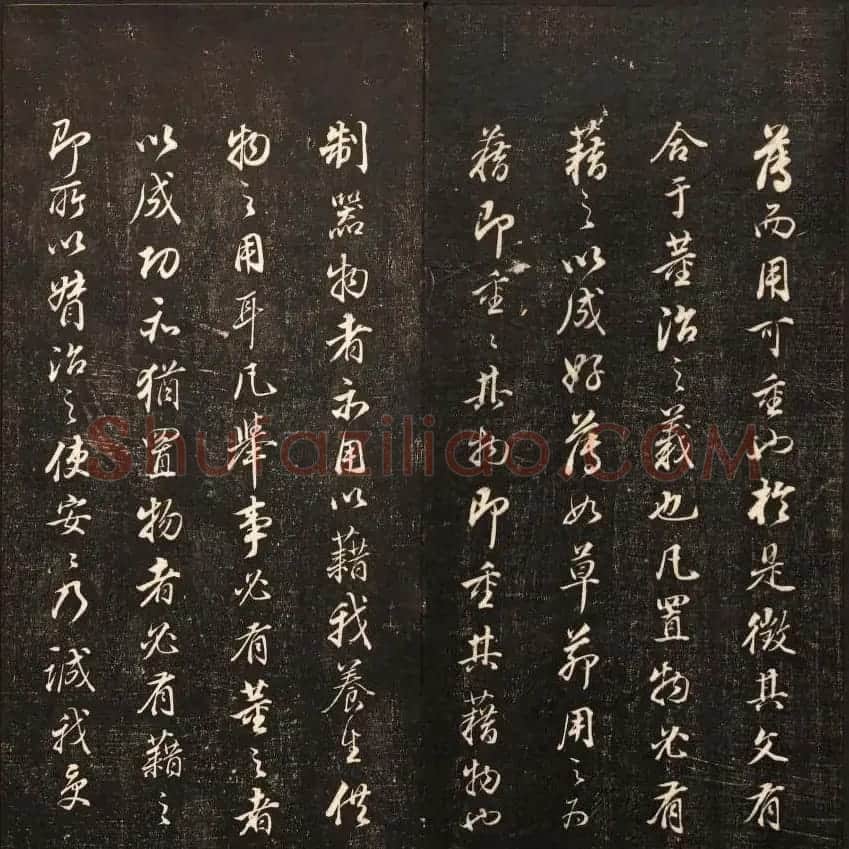 薄而用可重也於是徵其文有
合于董治之義也凡置物必有
藉之以成好薄如草茆用之為
藉即重〻其物即重其藉物也
制器物者示用以藉我養生供
物之用耳凡舉事必有董之者
以成功亦猶置物者必有藉之
即所以督治之使安〻乃誠我
Shufaziliao.COM